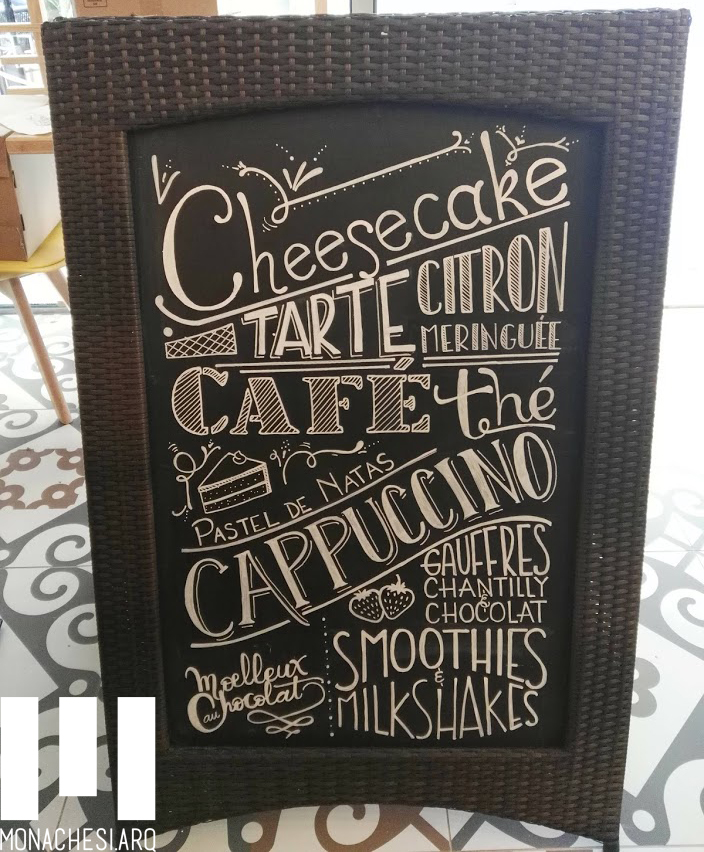 Cheesecake
TARTE
CITRON
MERINGUÉE
CAFÉ thé
PASTEL DE NATAS
CAPPUCCINO
GAUFFRES
CHANTILLY
&
CHOCOLAT
Moelleux
au Chocolat
SMOOTHIES
&
MILKSHAKES
MONACHESI.ARQ